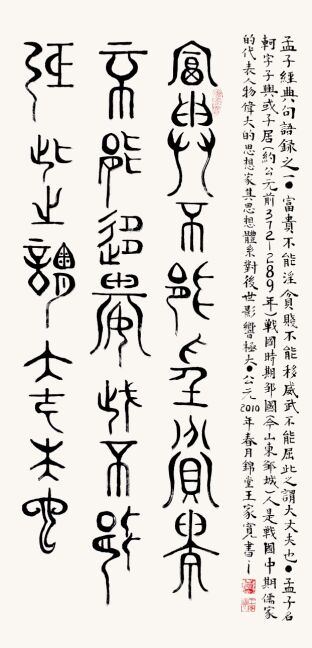 孟子經典句語録之一•富貴不能淫貧賤不能移威武不能屈此之謂大丈夫也•孟子名
軻字子輿或子居(約公元前372-289年)戰國時期鄒國(今山東鄒城)人是戰國中期儒家
的代表人物偉大的思想家其思想體系對後世影響極大•公元2010年春月錦堂王家寬書
富貴不能淫貧賤
不能移威武不能
屈此之謂大丈夫也